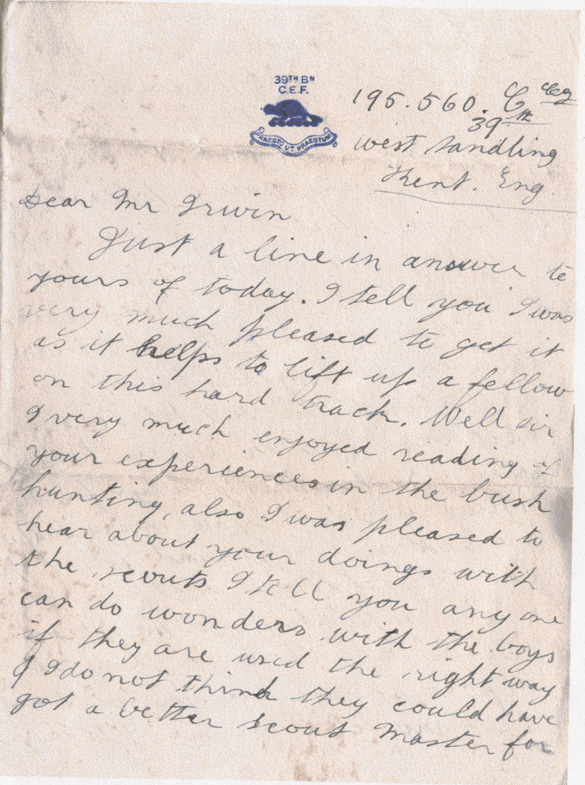 39TH BN
C.E.F.
PRAESTO UT PRAESTEM
195.560. C Coy
39th
West Sandling
Kent. Eng.
Dear Mr Irwin
Just a line in answer to
yours of today. I tell you I was
very much pleased to get it
as it helps to lift up a fellow
on this hard track. Well sir
I very much enjoyed reading of
your experiences in the bush
hunting, also I was pleased to
hear about your doings with
the scouts I tell you any one
can do wonders with the boys
if they are used the right way
I do not think they could have
got a better scout master for